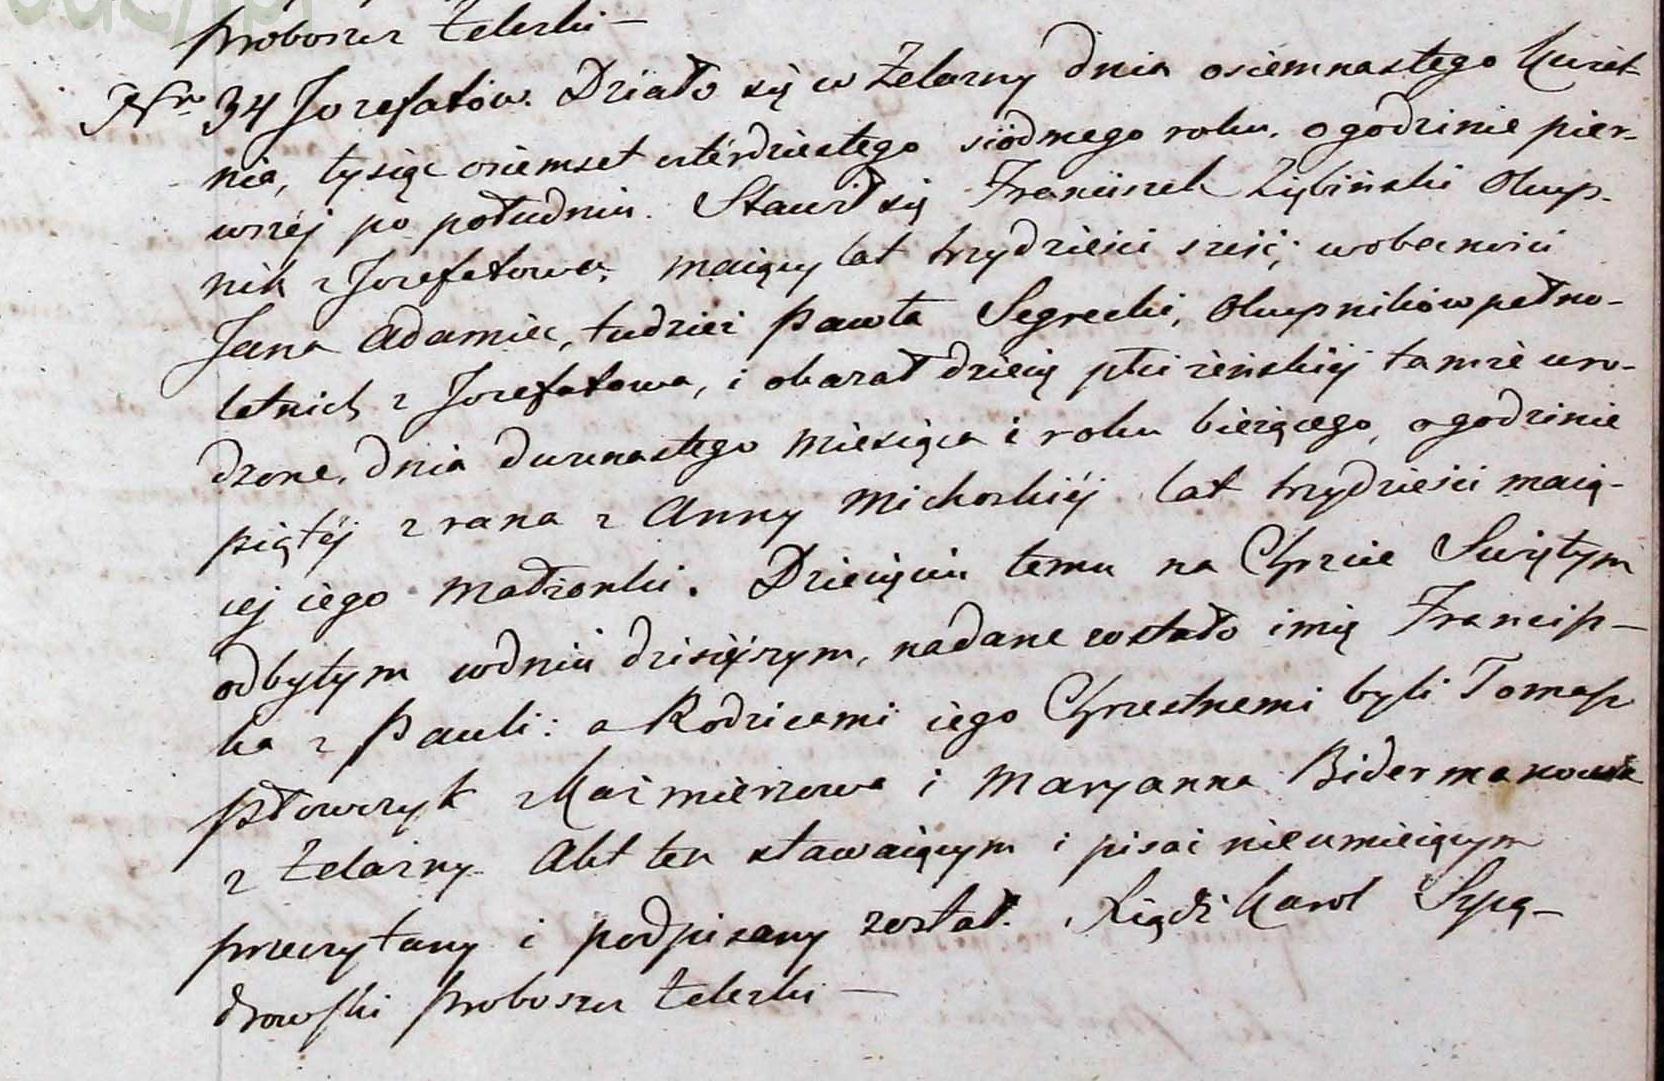 Proboszcz Żelazki —
Nro 34 Jozefatów. Działo się w Żelazny dnia osiemnastego Kwiet-
nia, tysiąc osiemset czterdziestego siódmego roku, o godzinie pier-
wszéj po południu. Stawił się Franciszek Zybiński Okup-
nik z Jozefatowa, maiący lat trzydzieści sześć, w obecności
Jana Adamiec, tudzież Pawła Segrecki, Okupników pełno-
letnich z Jozefatowa, i okazał dziecię płci żeńskiéj tamże uro-
dzone, dnia dwunastego miesiąca i roku bieżącego, o godzinie
piątéj z rana z Anny Michorskiéj lat trzydzieści maią-
cej iego małżonki. Dziecięciu temu na Chrzcie Swiętym
odbytym w dniu dzisiéjszym, nadane zostało imię Francisz-
ka z Pauli: a Rodzicami iego Chrzestnemi byli Tomasz
Płowczyk z Kaźmierzowa i Maryanna Bidermanowa
z Żelazny. Akt ten stawaiącym i pisać nieumieiącym
przeczytany i podpisany został. Xiądz Karol Szpą-
drowski Proboszcz Żelazki —